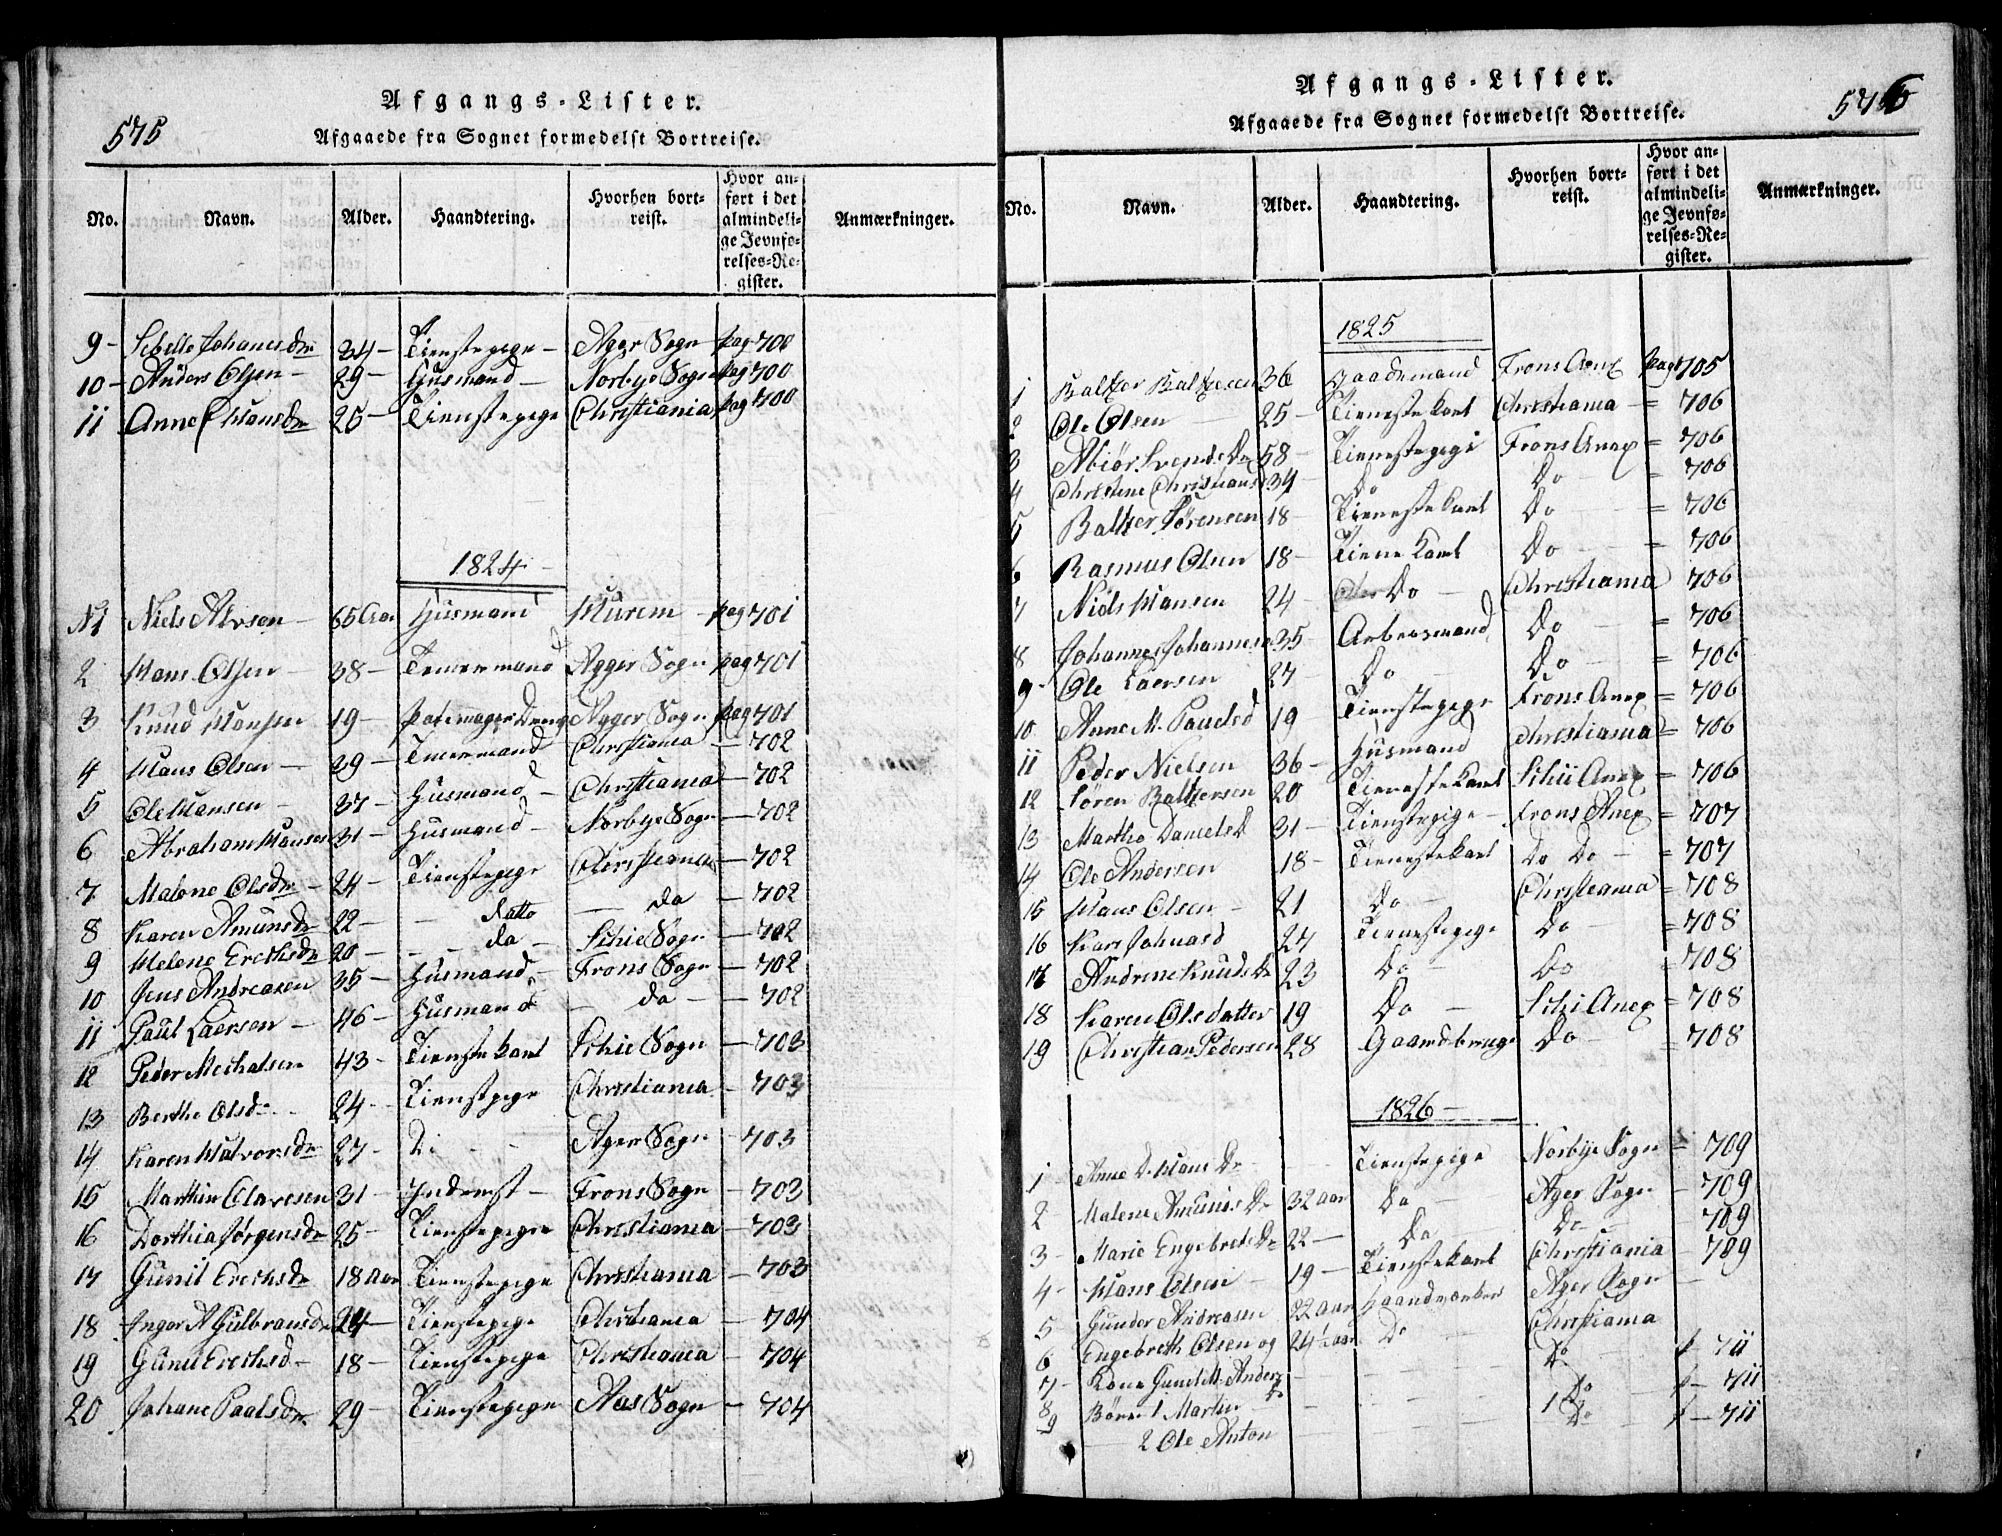 575
Afgangs-Lister.
Afgaaede fra Sognet formedelst Bortreise.
No. Navn. Alder. Haandtering. Hvorhen bortreist. Hvor anført i det almindelige Jevnførelses-Register. Anmærkninger.
9 - Sebille Johanesdr 34 - Tienstepige - Ager Sogn pag 700
10 - Anders Olsen - 29 - Huusmand - Norbye Sogn pag 700
11 Anne Hansdr 25 - Tienstepige Christiania pag 700
1824 -
N1 Niels Alvsen - 65 Aar Huusmand - pag 701
2 Hans Olsen - 38 - Temermand Agger Sogn pag 701
3 Knud Hansen 19 - Agger Sogn pag 701
4 Hans Olsen - 29 - Temermand Christiania - 702
5 Ole Hansen - 37 - Huusmand - Christiania - 702
6 Abraham Hansen 31 - Huusmand - Norbye Sogn - 702
7 Malene Olsdr - 24 - Tienstepige Christiania - 702
8 Karen Amunsdr 22 - - datto - do - 702
9 Helene Erichsdr 20 - - do - Schie Sogn - 702
10 Jens Andreasen 35 - Huusmand - Frons Sogn - 702
11 Paul Laersen - 46 - Huusmand - do - - 702
12 Peder Michalsen 43 - Tienstekarl Schie Sogn - 703
13 Berthe Olsd - 24 - Tienstpige Christiania - 703
14 Karen Halvorsdr 27 - Do - Ager Sogn - 703
15 Marthin Olavesen 31 - Inderst - Frons Sogn - 703
16 Dorthia Jørgensdr 25 - Tienstepige Christiania - 703
17 Gunil Erichsdr 18 Aar Tienstepige Christiania - 703
18 Inger A Gulbransdr 24 - Tienstepige Christiania - 704
19 Gunil Erichsd - 18 - Tienstepige Christiania - 704
20 Johane Paalsdr 29 - Tienstepige Aas Sogn - 704
576
Afgangs-Lister.
Afgaaede fra Sognet formedelst Bortreise.
No. Navn. Alder. Haandtering. Hvorhen bortreist. Hvor anført i det almindelige Jevnførelses-Register. Anmærkninger.
1825
1 Baltzer Baltzersen 36 Gaardmand Frons Anex pag 705
2 Ole Olsen 25 - Tienestekarl Christiania - = 706
3 Abiør Svends Dr 58 - Tienestepige Frons Anex = 706
4 Christine Christians 34 - Do Do - = 706
5 Baltzer Sørensen 18 - Tienestekarl Do - = 706
6 Rasmus Olsen 18 - Tiene Karl Do - = 706
7 Niels Hansen 24 - Do - Christiania 706
8 Johannes Johannesen 35 Arbeidsmand Do - = 706
9 - Ole Laersen 27 - Do - Do - = 706
10 Anne M. Paulsd 19 Tienstepige Frons Anex = 706
11 Peder Nielsen 36 - Huusmand Christiania = 706
12 Søren Baltzersen 20 Tienestekarl Schii Anex = 706
13 Marthe Daniels D 31 - Tienstepige - Frons Anex = 707
14 Ole Andersen 18 - Tienestekarl Do Do - = 707
15 Hans Olsen - 21 Do - Christiania = 708
16 Kari Johnasd 27 Tienestepige Do - = 708
17 Andrine Knuds Dr 23 Do - Do = 708
18 Karen Olsdatter 19 Do - Schi Anex = 708
19 Christian Pedersen 28 Gaardbruger Do - = 708
1826 -
1 Anne D. Hans Dr - Tienstepige Norbye Sogn = 709
2 Malene Amunds Dr 32 aar Do - Ager Sogn - 709
3 - Marie Engebrets Dr 22 - Do Do - - 709
4 - Hans Olsen - 19 - Tienstekarl Christiania - 709
5 Gunder Andreasen 22 aar Haandverker Ager Sogn -
6 Engebreth Olsen og 24½ aar Do - Christiania
7 - Kone Gunil M. Anders Dr - - - Do - 711
8 Børn 1 Martin - - - Do - 711
9 2 Ole Anton - - - Do - 711